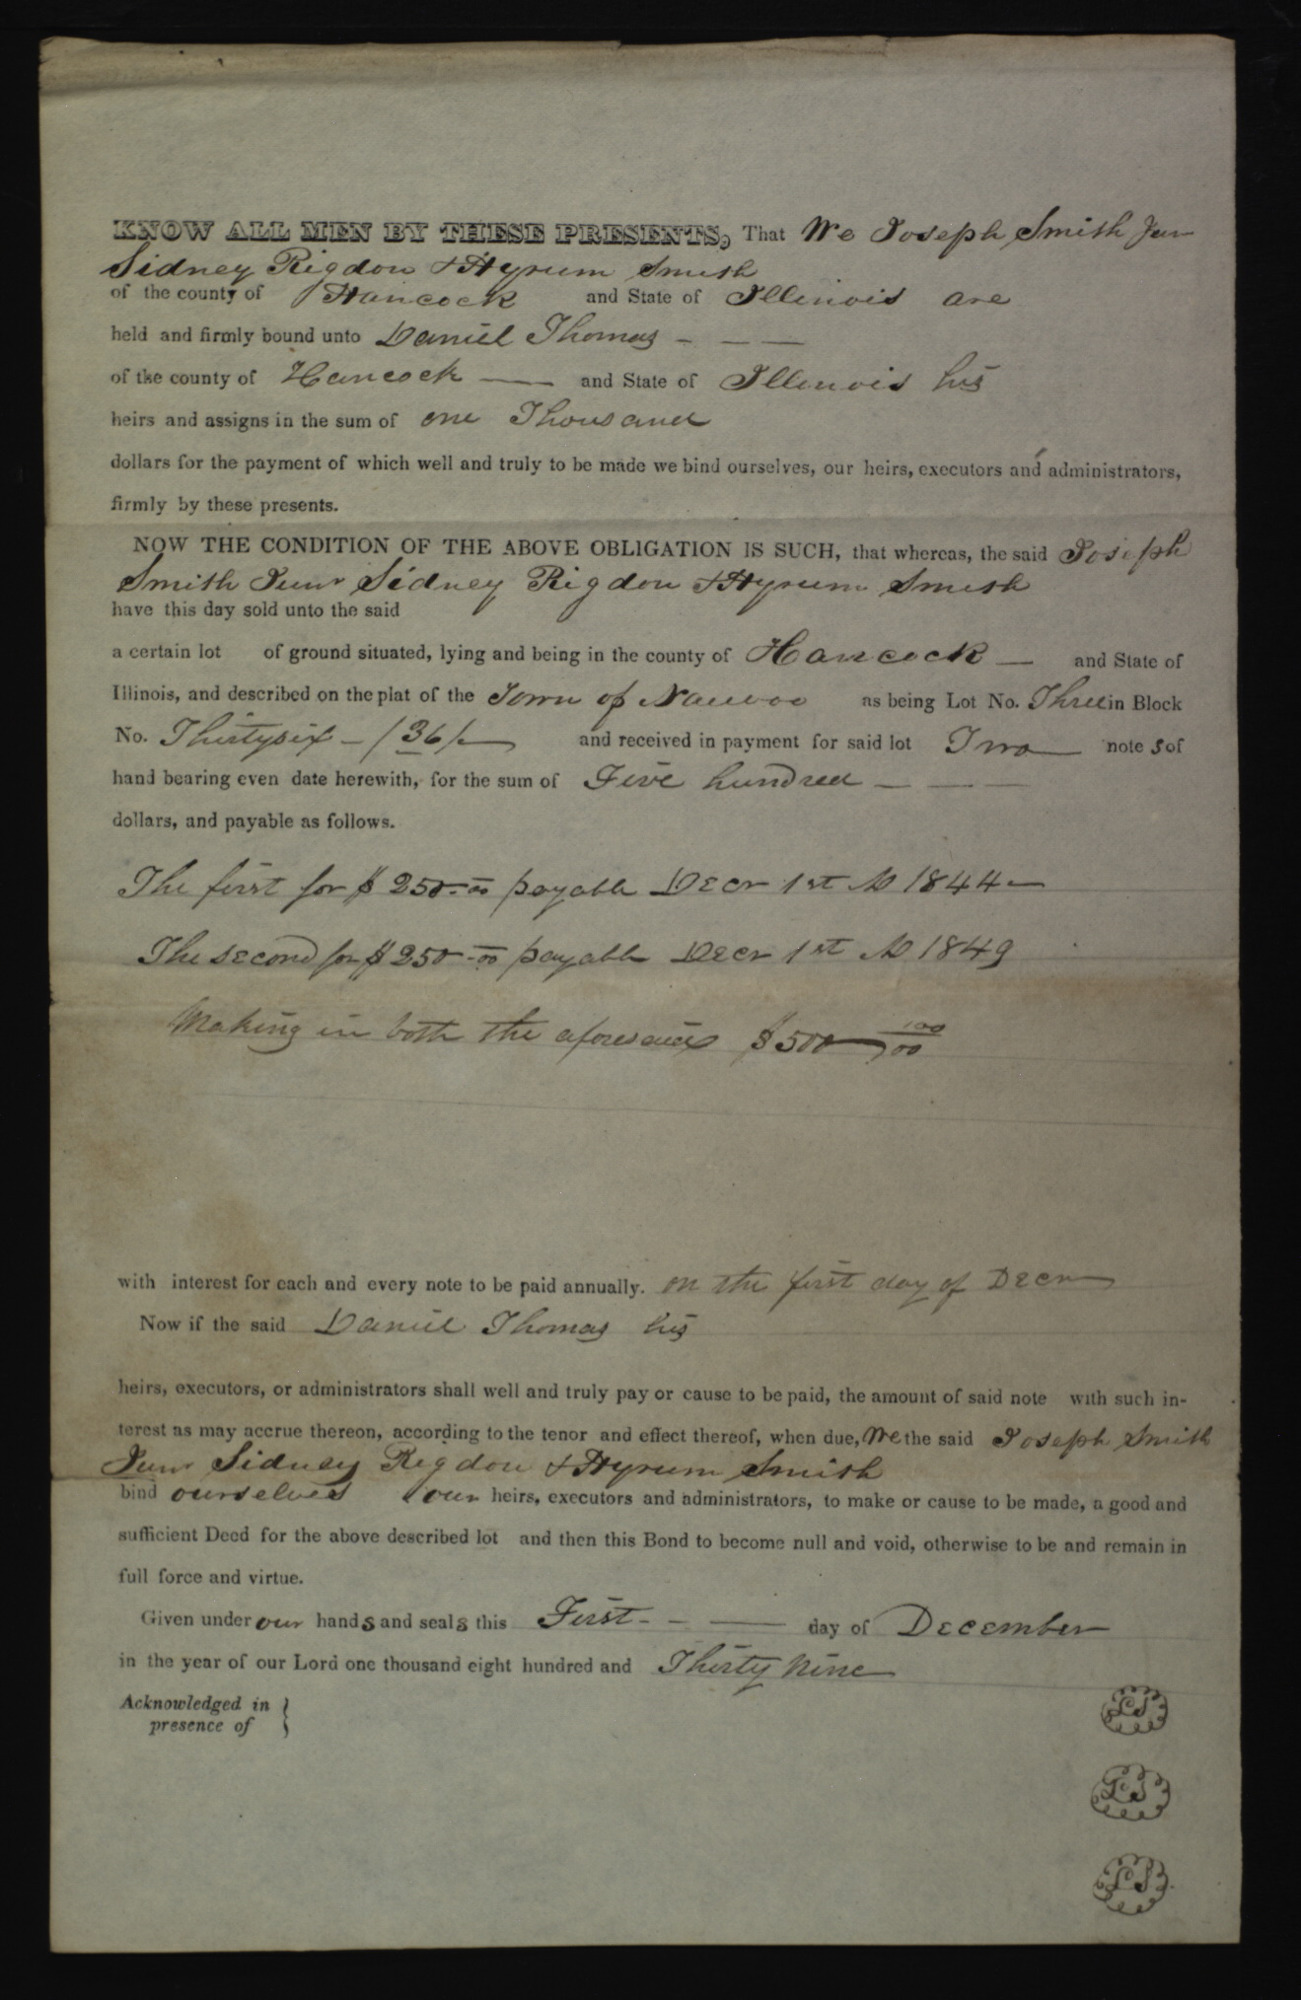 KNOW ALL MEN BY THESE PRESENTS, That We Joseph Smith Jun
Sidney Rigdon & Hyrum Smith
of the county of Hancock and State of Illinois are
held and firmly bound unto Daniel Thomas - — —
of the county of Hancock — and State of Illinois his
heirs and assigns in the sum of one Thousand
dollars for the payment of which well and truly to be made we bind ourselves, our heirs, executors and administrators,
firmly by these presents.
NOW THE CONDITION OF THE ABOVE OBLIGATION IS SUCH, that whereas, the said Joseph
Smith Junr Sidney Rigdon & Hyrum Smith
have this day sold unto the said
a certain lot of ground situated, lying and being in the county of Hancock — and State of
Illinois, and described on the plat of the Town of Nauvoo as being Lot No. Three in Block
No. Thirtysix - (36) — and received in payment for said lot Two — notes of
hand bearing even date herewith, for the sum of Five hundred — — —
dollars, and payable as follows.
The first for $250-00 payable Decr 1st AD 1844 —
The second for $250-00 payable Decr 1st AD 1849
Making in both the aforesaid $500 — 100/00
with interest for each and every note to be paid annually. on the first day of Decr
Now if the said Daniel Thomas his
heirs, executors, or administrators shall well and truly pay or cause to be paid, the amount of said note with such in-
terest as may accrue thereon, according to the tenor and effect thereof, when due, We the said Joseph Smith
Junr Sidney Rigdon & Hyrum Smith
bind ourselves our heirs, executors and administrators, to make or cause to be made, a good and
sufficient Deed for the above described lot and then this Bond to become null and void, otherwise to be and remain in
full force and virtue.
Given under our hands and seals this First - - — day of December
in the year of our Lord one thousand eight hundred and Thirty nine
Acknowledged in }
presence of
LS
LS
LS